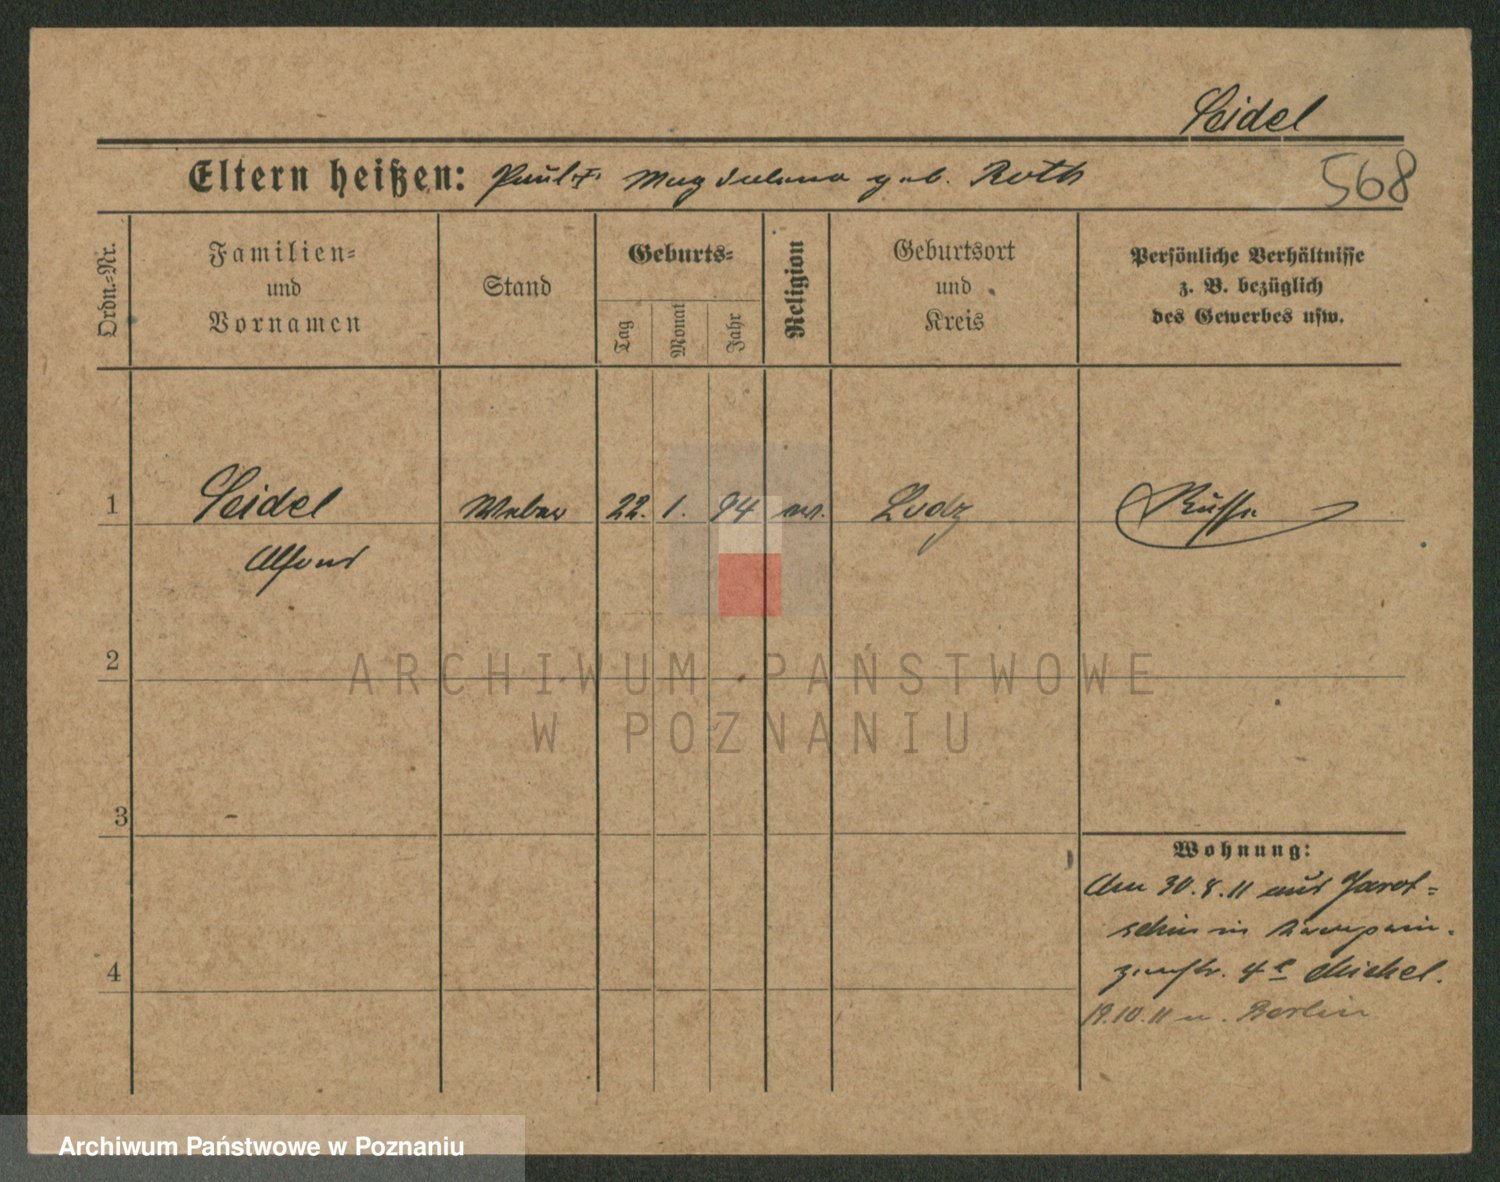 Seidel
Eltern heißen: Paul + Magdalena geb. Roth
568
Ordn.-Nr.
Familien-
und
Vornamen
Stand
Geburts-
Tag
Monat
Jahr
Religion
Geburtsort
und
Kreis
Persönliche Verhältnisse
z. B. bezüglich
des Gewerbes usw.
1
Seidel
Weber
22. 1. 94
Lodz
Russe
Alfons
2
ARCHIWUM PAŃSTWOWE
W POZNANIU
3
Wohnung:
Am 30.8.11 aus Jarot=
schin in
4
4 Michel.
19.10.11 n. Berlin
Archiwum Państwowe w Poznaniu